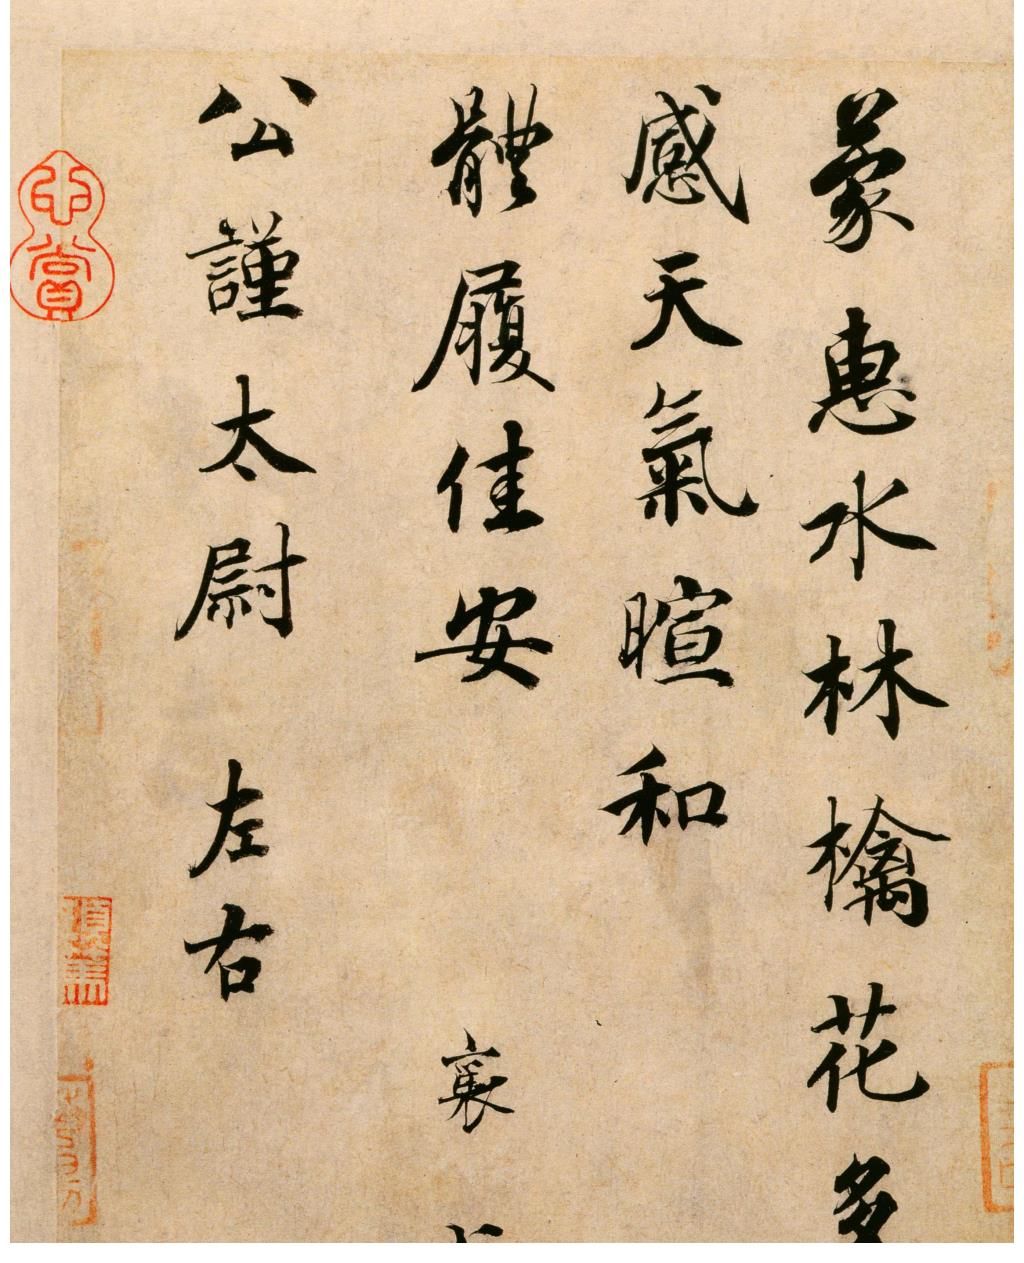 蒙惠水林檎花多
感天氣暄和
體履佳安襄
公謹太尉左右